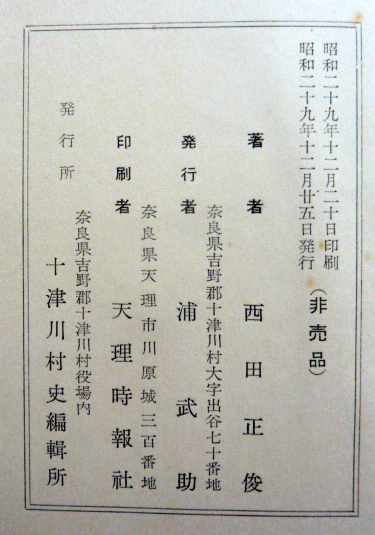 昭和二十九年十二月二十日印刷
昭和二十九年十二月廿五日発行
(非売品)
著者 西田正俊
奈良県吉野郡十津川村大字出谷七十番地
発行者 浦武助
奈良県天理市川原城三百番地
印刷者 天理時報社
奈良県吉野郡十津川村役場内
発行所 十津川村史編輯所